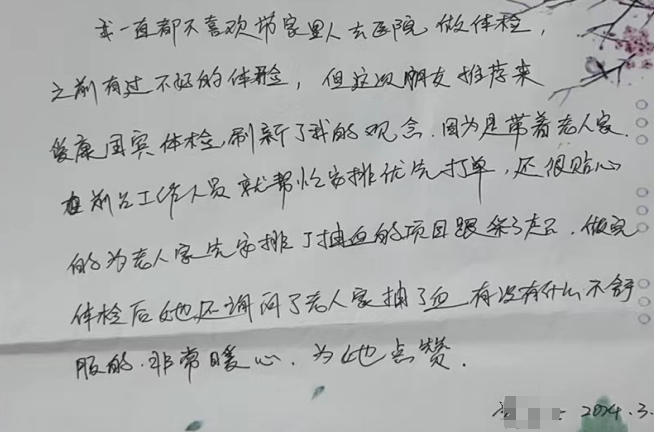 我一直都不喜欢带家里人去医院做体检,
之前有过不好的体验, 但这次朋友推荐来
爱康国宾体检,刷新了我的观念.因为是带着老人家.
在前台工作人员就帮忙安排优先打单,还很贴心
的为老人家先安排了抽血的项目跟餐了点.做完
体检后她还询问了老人家抽了血有没有什么不舒
服的.非常暖心.为她点赞.
2024.3.